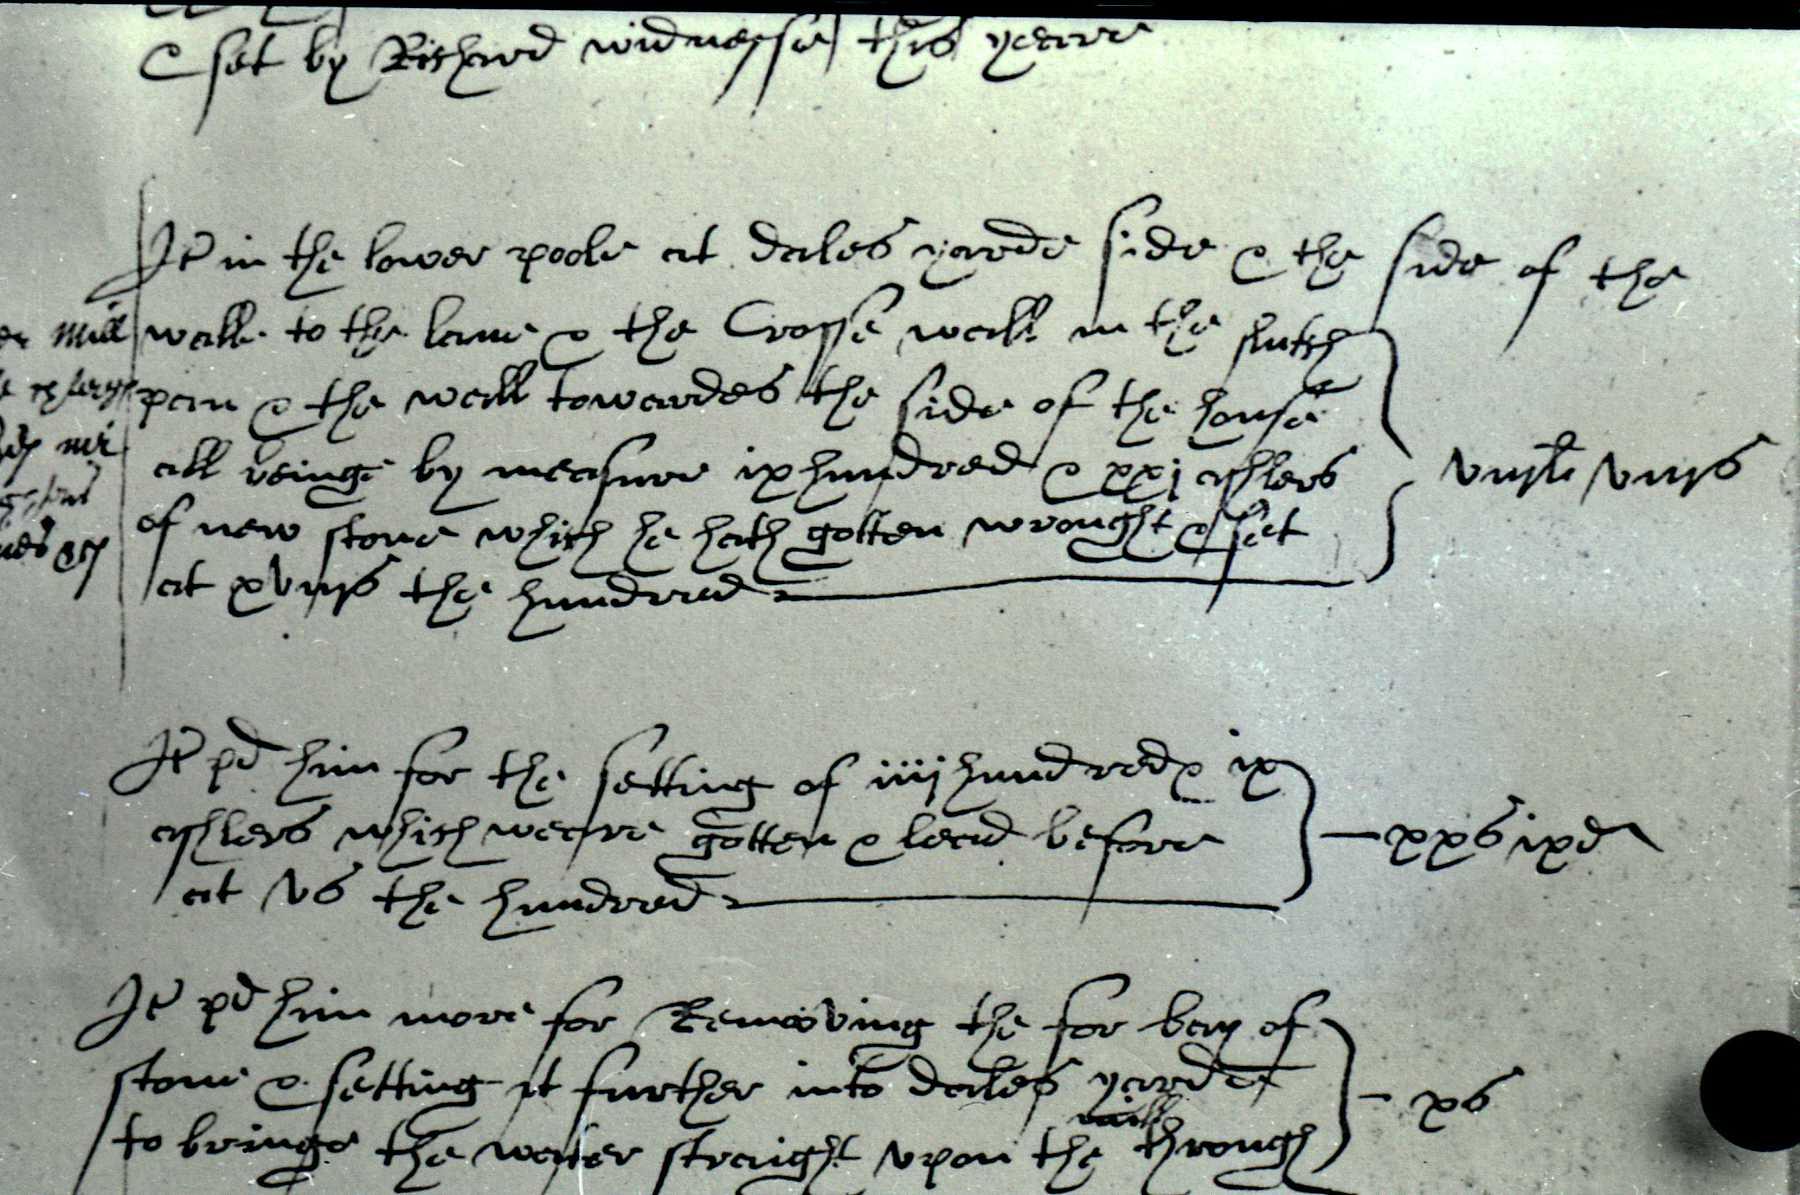 & set by Richard widnesse this yeare
Itm in the lower poole at dales yarde side & the side of the
mill walle to the lane & the Crosse wall in the slutch
pan & the wall towardes the side of the house
all beinge by measure ix hundred & xxj ashlers
of new stone which he hath gotten wrought & set
at xviijs the hundred
viijli viijs
Itm pd him for the setting of iiij hundred & ix
ashlers which weare gotten & lead before
at vs the hundred
xxs ixd
Itm pd him more for Removing the for bay of
stone & setting it further into dales yarde
xs
to bringe the water straight upon the wall through